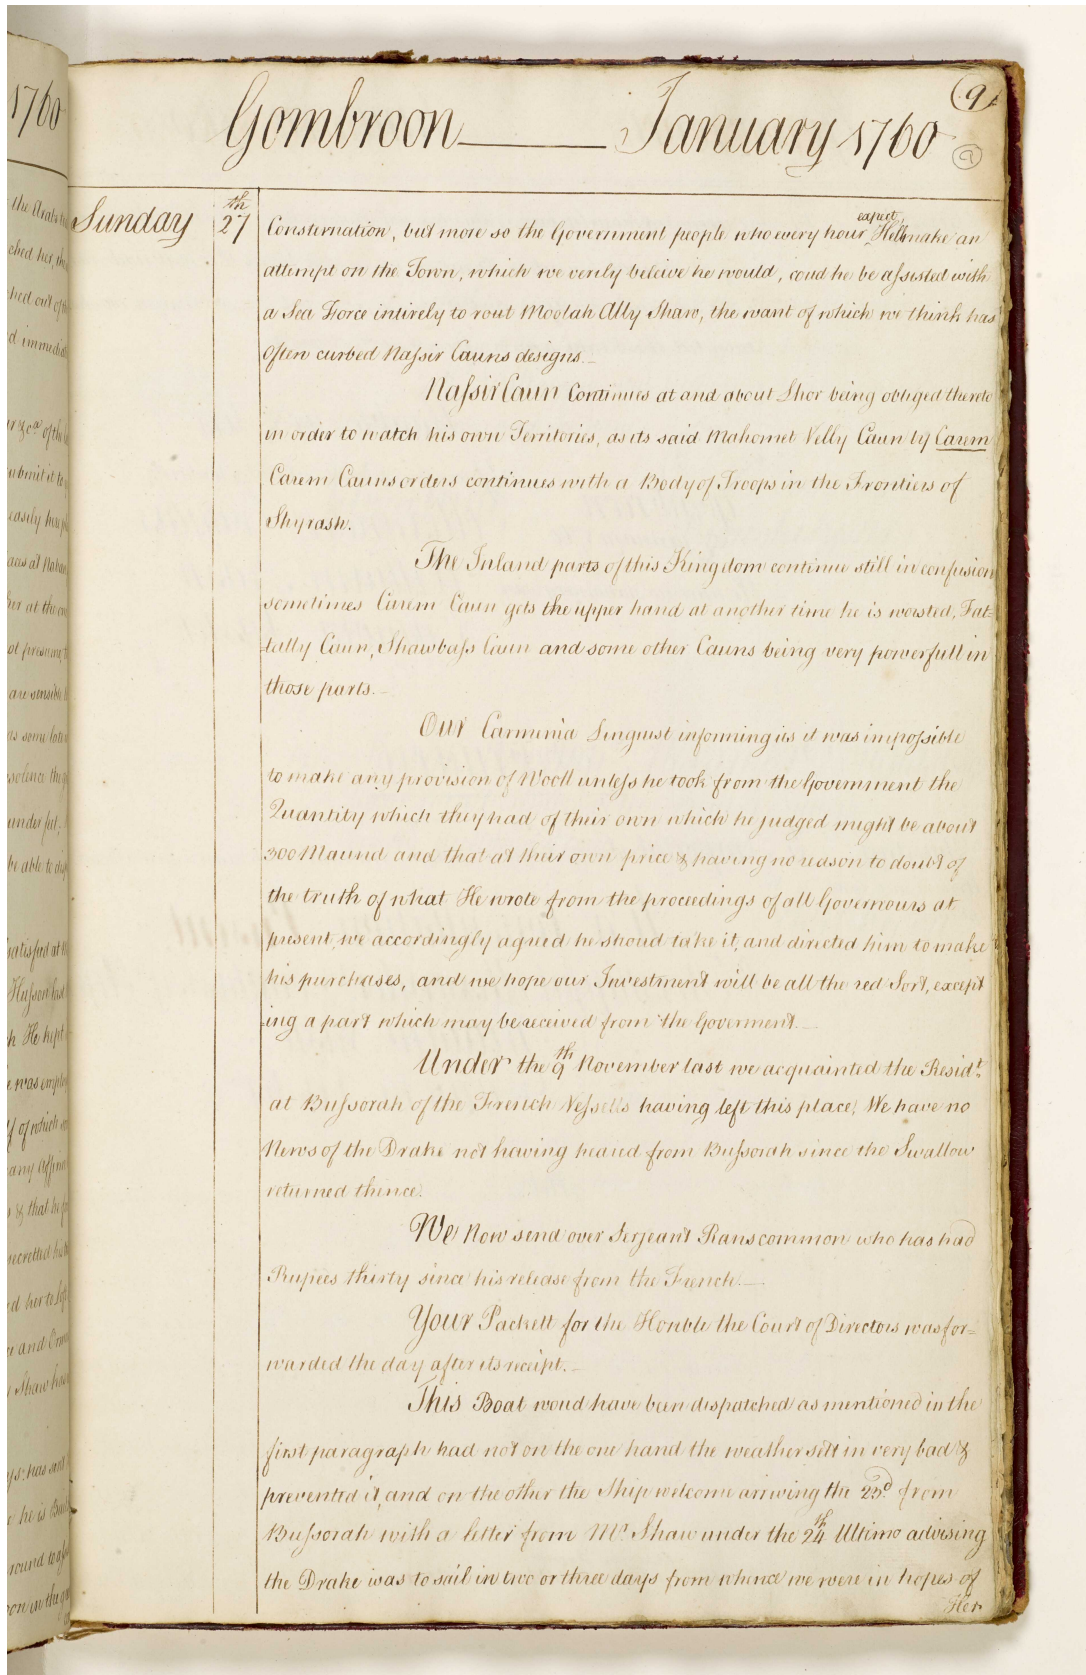 Gombroon January 1760
9
a
Sunday 27th
Consternation, but more so the Government people who every hour expect He'll make an
attempt on the Town, which we verily beleive he would, coud he be assisted with
a Sea Force intirely to rout Moolah Ally Shaw, the want of which we think has
often curbed Nassir Cauns designs._
Nassir Caun Continues at and about Shor being obliged thereto
in order to watch his own Territories, as its said Mahomet Velly Caun by Carem
Carem Cauns orders continues with a Body of Troops in the Frontiers of
Shyrash.
The Inland parts of this Kingdom continue still in confusion
sometimes Carem Caun gets the upper hand at another time he is worsted, Fat=
=tally Caun, Shawbass Caun and some other Cauns being very powerfull in
those parts._
Our Carmenia Linguist informing us it was impossible
to make any provision of Wooll unless he took from the Government the
Quantity which they had of their own which he judged might be about
300 Maund and that at their own price & having no reason to doubt of
the truth of what He wrote from the proceedings of all Governours at
present, we accordingly agreed he shoud take it, and directed him to make
his purchases, and we hope our Investment will be all the red Sort, except
=ing a part which may be received from the Goverment._
Under the 9th November last we acquainted the Residt.
at Bussorah of the French Vessells having left this place, We have no
News of the Drake not having heared from Bussorah since the Swallow
returned thence.
We Now send over Serjeant Ranscommon who has had
Rupees thirty since his release from the French._
Your Packett for the Honble the Court of Directors was for=
warded the day after its receipt._
This Boat woud have been dispatched as mentioned in the
first paragraph had not on the one hand the weather sett in very bad &
prevented it, and on the other the Ship welcome arriving the 23d from
Bussorah with a letter from Mr Shaw under the 24th Ultimo advising
the Drake was to sail in two or three days from whence we were in hopes of
Her